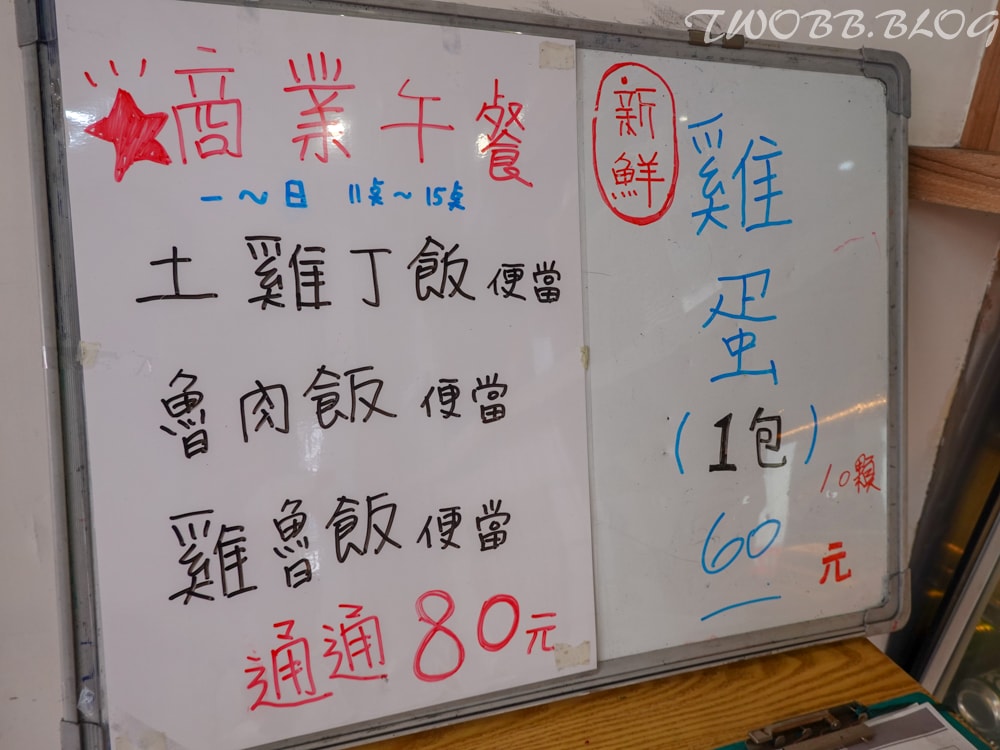 TWOBB.BLOG
商業午餐
一~日 11点~15点
土雞丁飯便當
魯肉飯便當
雞魯飯便當
通通80元
新鮮
雞
蛋
(1包)
10顆
60元